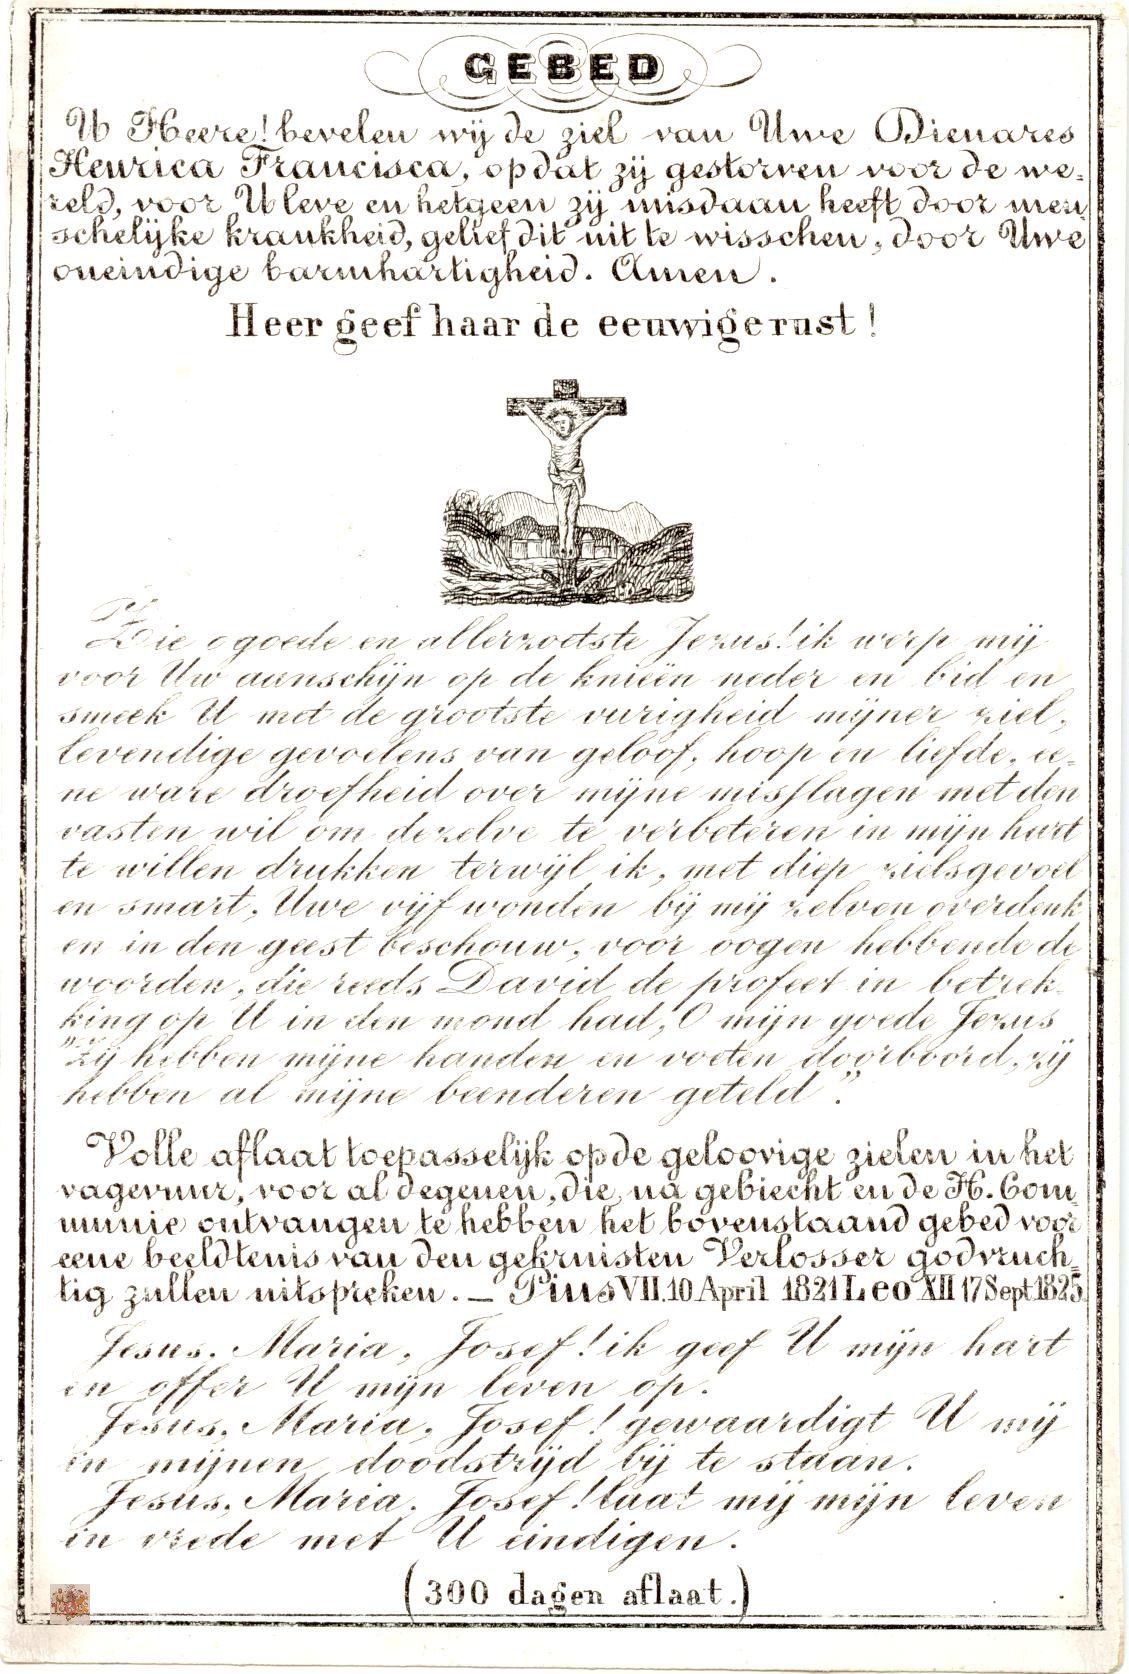 GEBED
U Heere! bevelen wij de ziel van Uwe Dienares
Henrica Francisca, opdat zij gestorven voor de we-
reld, voor U leve en hetgeen zij misdaan heeft door men
schelijke krankheid, gelief dit uit te wisschen, door Uwe
oneindige barmhartigheid. Amen.
Heer geef haar de eeuwige rust!
Zie o goede en allerzoetste Jezus! ik werp mij
voor Uw aanschijn op de knieën neder en bid en
smeek U met de grootste vurigheid mijner ziel,
levendige gevoelens van geloof, hoop en liefde, ee-
ne ware droefheid over mijne misslagen met den
vasten wil om dezelve te verbeteren in mijn hart
te willen drukken terwijl ik, met diep zielsgevoel
en smart, Uwe vijf wonden bij mij zelven overdenk
en in den geest beschouw, voor oogen hebbende de
woorden, die reeds David de profeet in betrek-
king op U in den mond had, O mijn goede Jezus
"Zij hebben mijne handen en voeten doorboord, zij
hebben al mijne beenderen geteld".
Volle aflaat toepasselijk op de geloovige zielen in het
vagevuur, voor al degenen, die, na gebiecht en de H. Com
munie ontvangen te hebben het bovenstaand gebed voor
eene beeldtenis van den gekruisten Verlosser godvruch-
tig zullen uitspreken. — Pius VII. 10 April 1821 Leo XII 17 Sept 1825.
Jesus, Maria, Josef! ik geef U mijn hart
en offer U mijn leven op.
Jesus, Maria, Josef! gewaardigt U mij
in mijnen doodstrijd bij te staan.
Jesus, Maria, Josef! laat mij mijn leven
in vrede met U eindigen.
(300 dagen aflaat.)